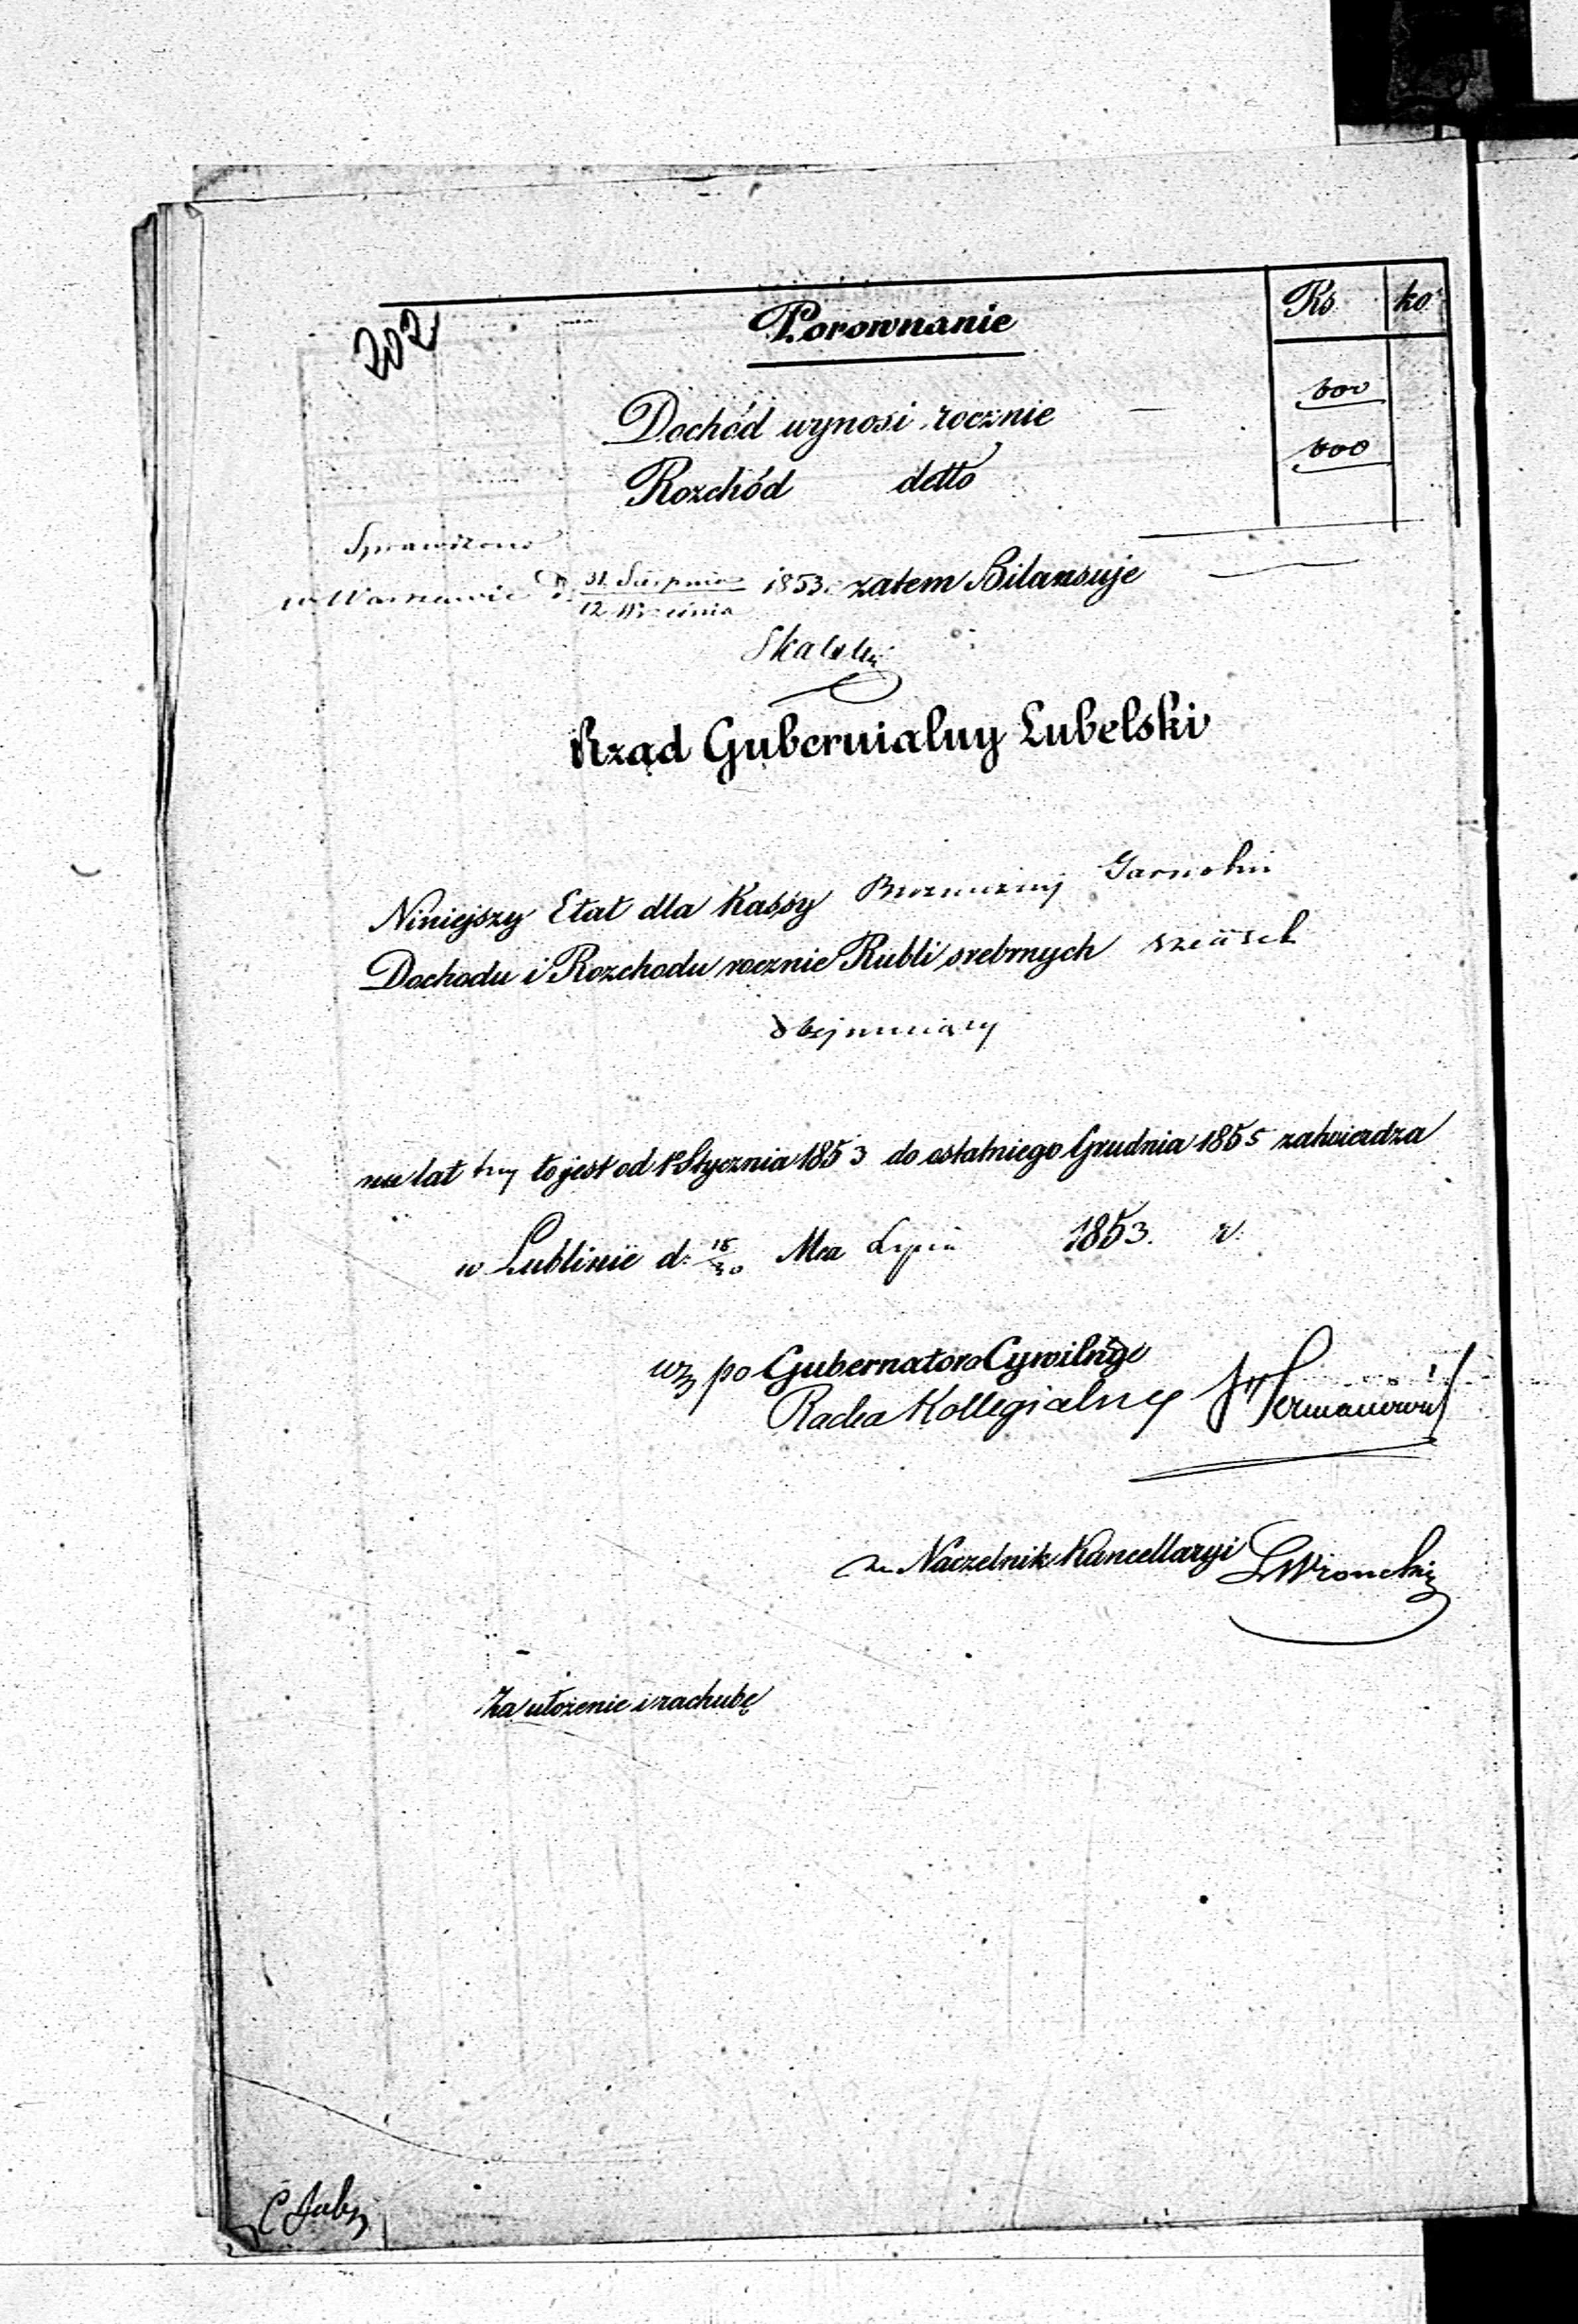 202
Porownanie
Rs ko
Dochód wynosi rocznie 600
Rozchód detto 600
Sprawdzono
w Warszawie d. 31 Sierpnia / 12 Września 1853. zatem Bilansuje
Rząd Gubernialny Lubelski
Niniejszy Etat dla Kassy Bużniczny Garwolin
Dochodu i Rozchodu rocznie Rubli srebrnych sześćset
obejmuiący
na lat trzy to jest od 1º Stycznia 1853 do ostatniego Grudnia 1855 zatwierdza
w Lublinie d: 18/30 Mca Lipca 1853. r.
wz po Gubernatora Cywilnego
Radca Kollegialny
za Naczelnik Kancellaryi LWronski
Za ułożenie i rachubę